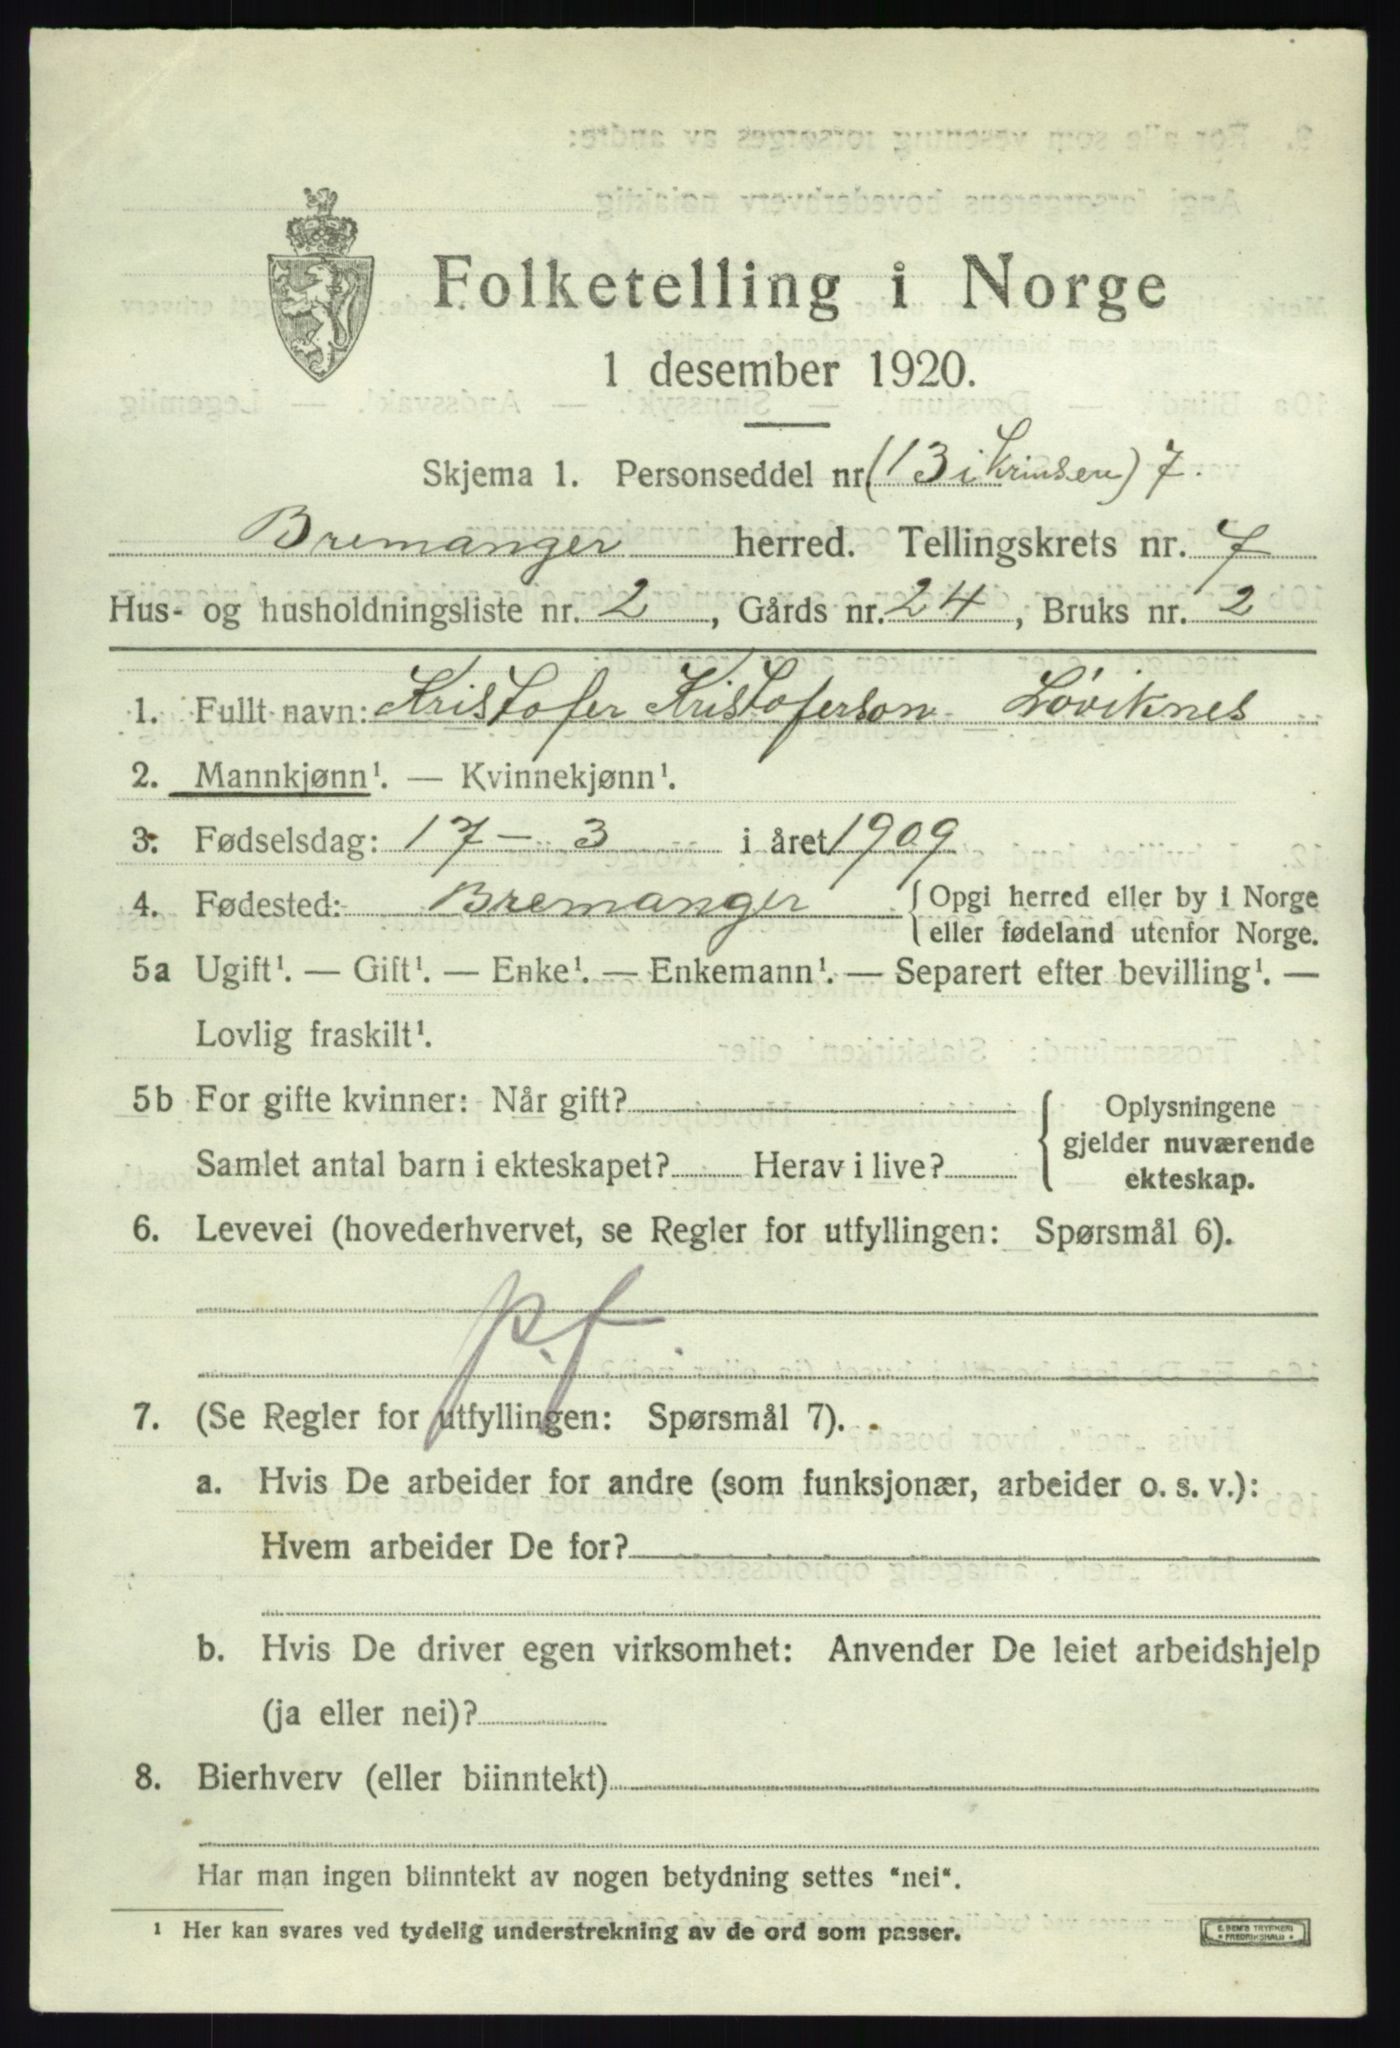 Folketelling i Norge
1 desember 1920.
Skjema 1. Personseddel nr. (13 i Krinsen) 7.
Bremanger herred. Tellingskrets nr. 7
Hus- og husholdningsliste nr. 2, Gårds nr. 24, Bruks nr. 2
1. Fullt navn: Kristofer Kristoferson Løviknes
2. Mannkjønn¹. — Kvinnekjønn¹.
3. Fødselsdag: 17 – 3 i året 1909
4. Fødested: Bremanger { Opgi herred eller by i Norge
eller fødeland utenfor Norge.
5a Ugift¹. — Gift¹. — Enke¹. — Enkemann¹. — Separert efter bevilling¹. —
Lovlig fraskilt¹.
5b For gifte kvinner: Når gift?
Samlet antal barn i ekteskapet? Herav i live?
{ Oplysningene
gjelder nuværende
ekteskap.
6. Levevei (hovederhvervet, se Regler for utfyllingen: Spørsmål 6).
p.f.
7. (Se Regler for utfyllingen: Spørsmål 7).
a. Hvis De arbeider for andre (som funksjonær, arbeider o. s. v.):
Hvem arbeider De for?
b. Hvis De driver egen virksomhet: Anvender De leiet arbeidshjelp
(ja eller nei)?
8. Bierhverv (eller biinntekt)
Har man ingen biinntekt av nogen betydning settes "nei".
¹ Her kan svares ved tydelig understrekning av de ord som passer.
E. SEM'S TRYKKERI
• FREDRIKSHALD •